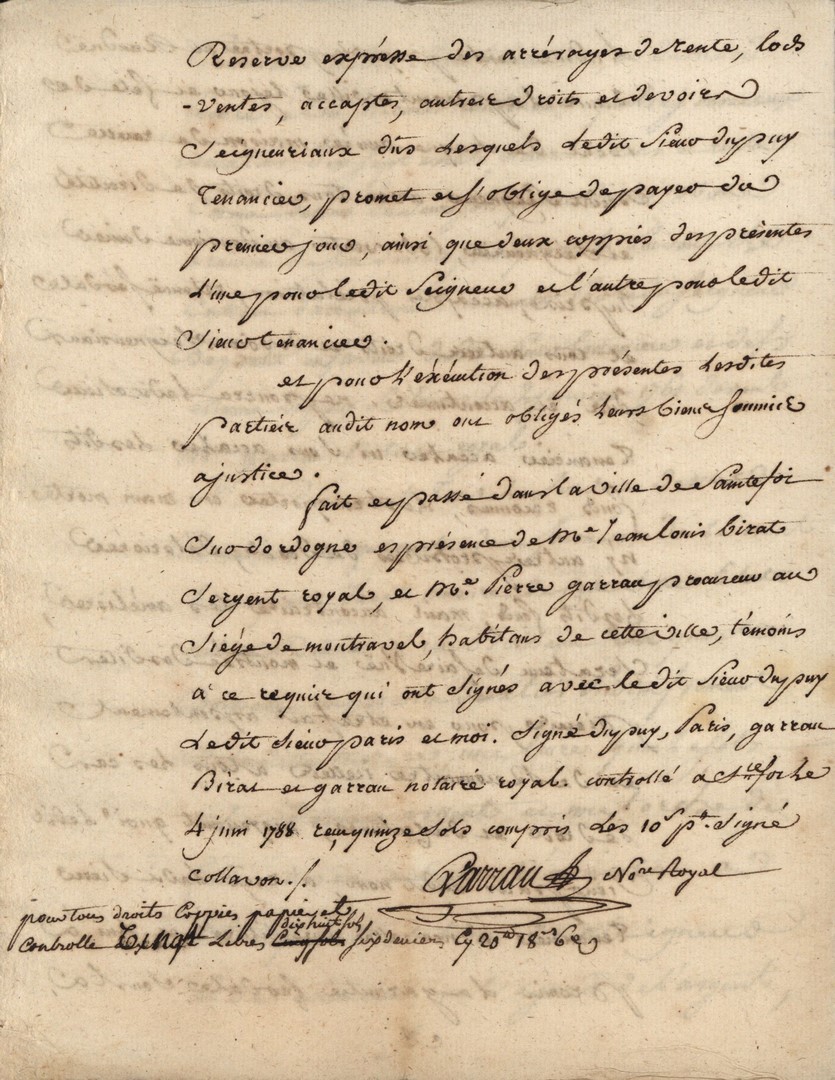 Reserve expresse des arrérages de rente, lods
-ventes, accaptes, autreir droits et devoirs
Seigneuriaux dûs desquels Ledit Sieur dupuy
Tenancier, promet et s'oblige de payer du
premier jour, ainsi que deux coppiés des présentes
L'une pour ledit Seigneur et l'autre pour ledit
Sieur tenancier.
et pour L'exécution des présentes Lesdites
partieir audit nom ont obligés Leurs biens soumis
a justice.
fait et passé dans la ville de Saintefoi
Sur dordogne es présence de Me Jean Louis birat
Sergent royal, et Me. Pierre garrau procureur au
Siége de montravel, habitans de cette ville, témoins
a ce requier qui ont Signés avec le dit Sieur dupuy
Ledit Sieur paris et moi. Signé dupuy, Paris, garrau
Birat et garrau notaire royal. controllé a Ste foi Le
4 juin 1788 reçu quinze Sols compris Les 10s pr. Signé
Collavon./.
Garrau Nore Royal
pour tous droits Coppies papier et
dix huit sols
Controlle Vingt Livres Cinq sols six deniers Cy 20tt 18s 6d